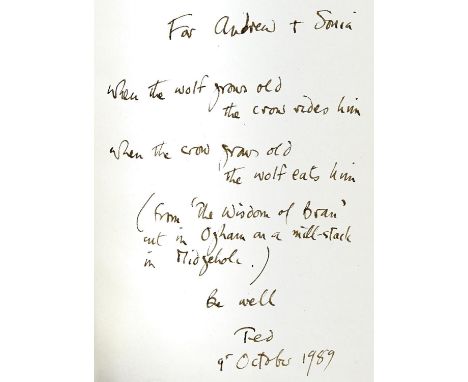 For Andrew + Sonia
When the wolf grows old
the crow rides him
When the crow grows old
the wolf eats him
(from 'The Wisdom of Bran'
cut in Ogham on a mill-stack
in Midgehole.)
Be well
Ted
9th October 1989